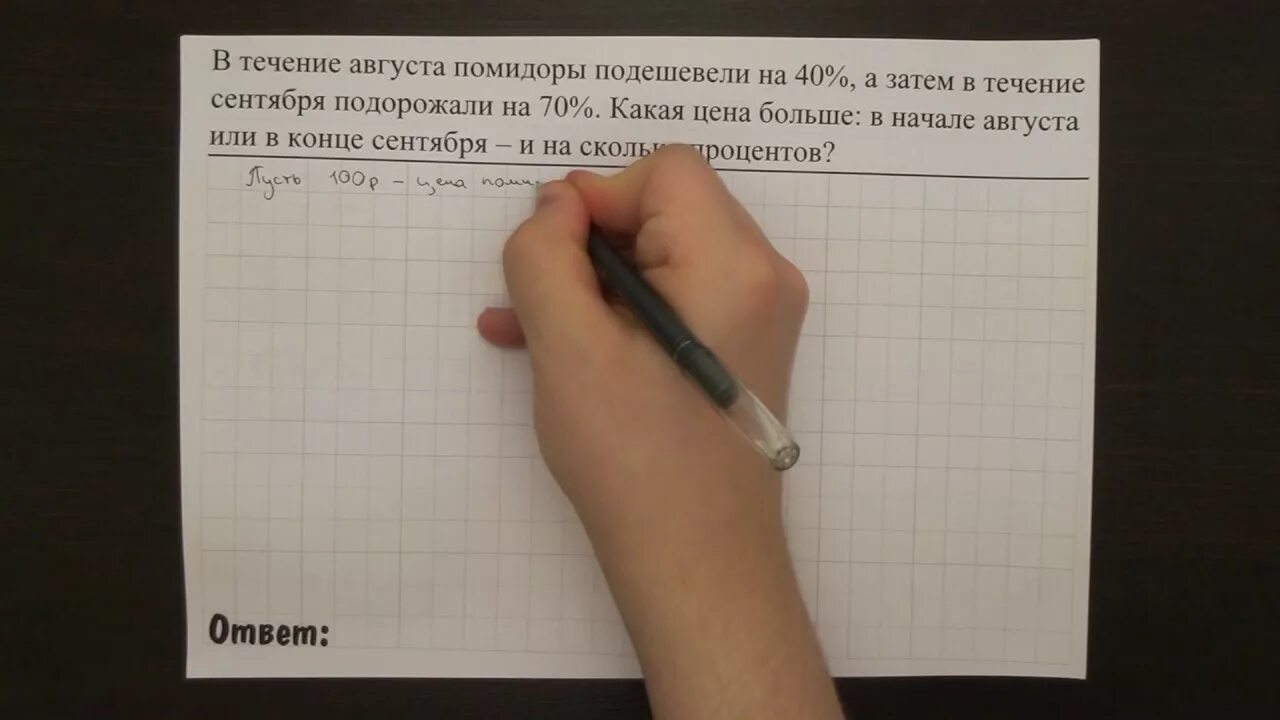 В течение августа помидоры подешевели на 40%, а затем в течение
сентября подорожали на 70%. Какая цена больше: в начале августа
или в конце сентября – и на процентов?
Пусть 100р – цена
Ответ: